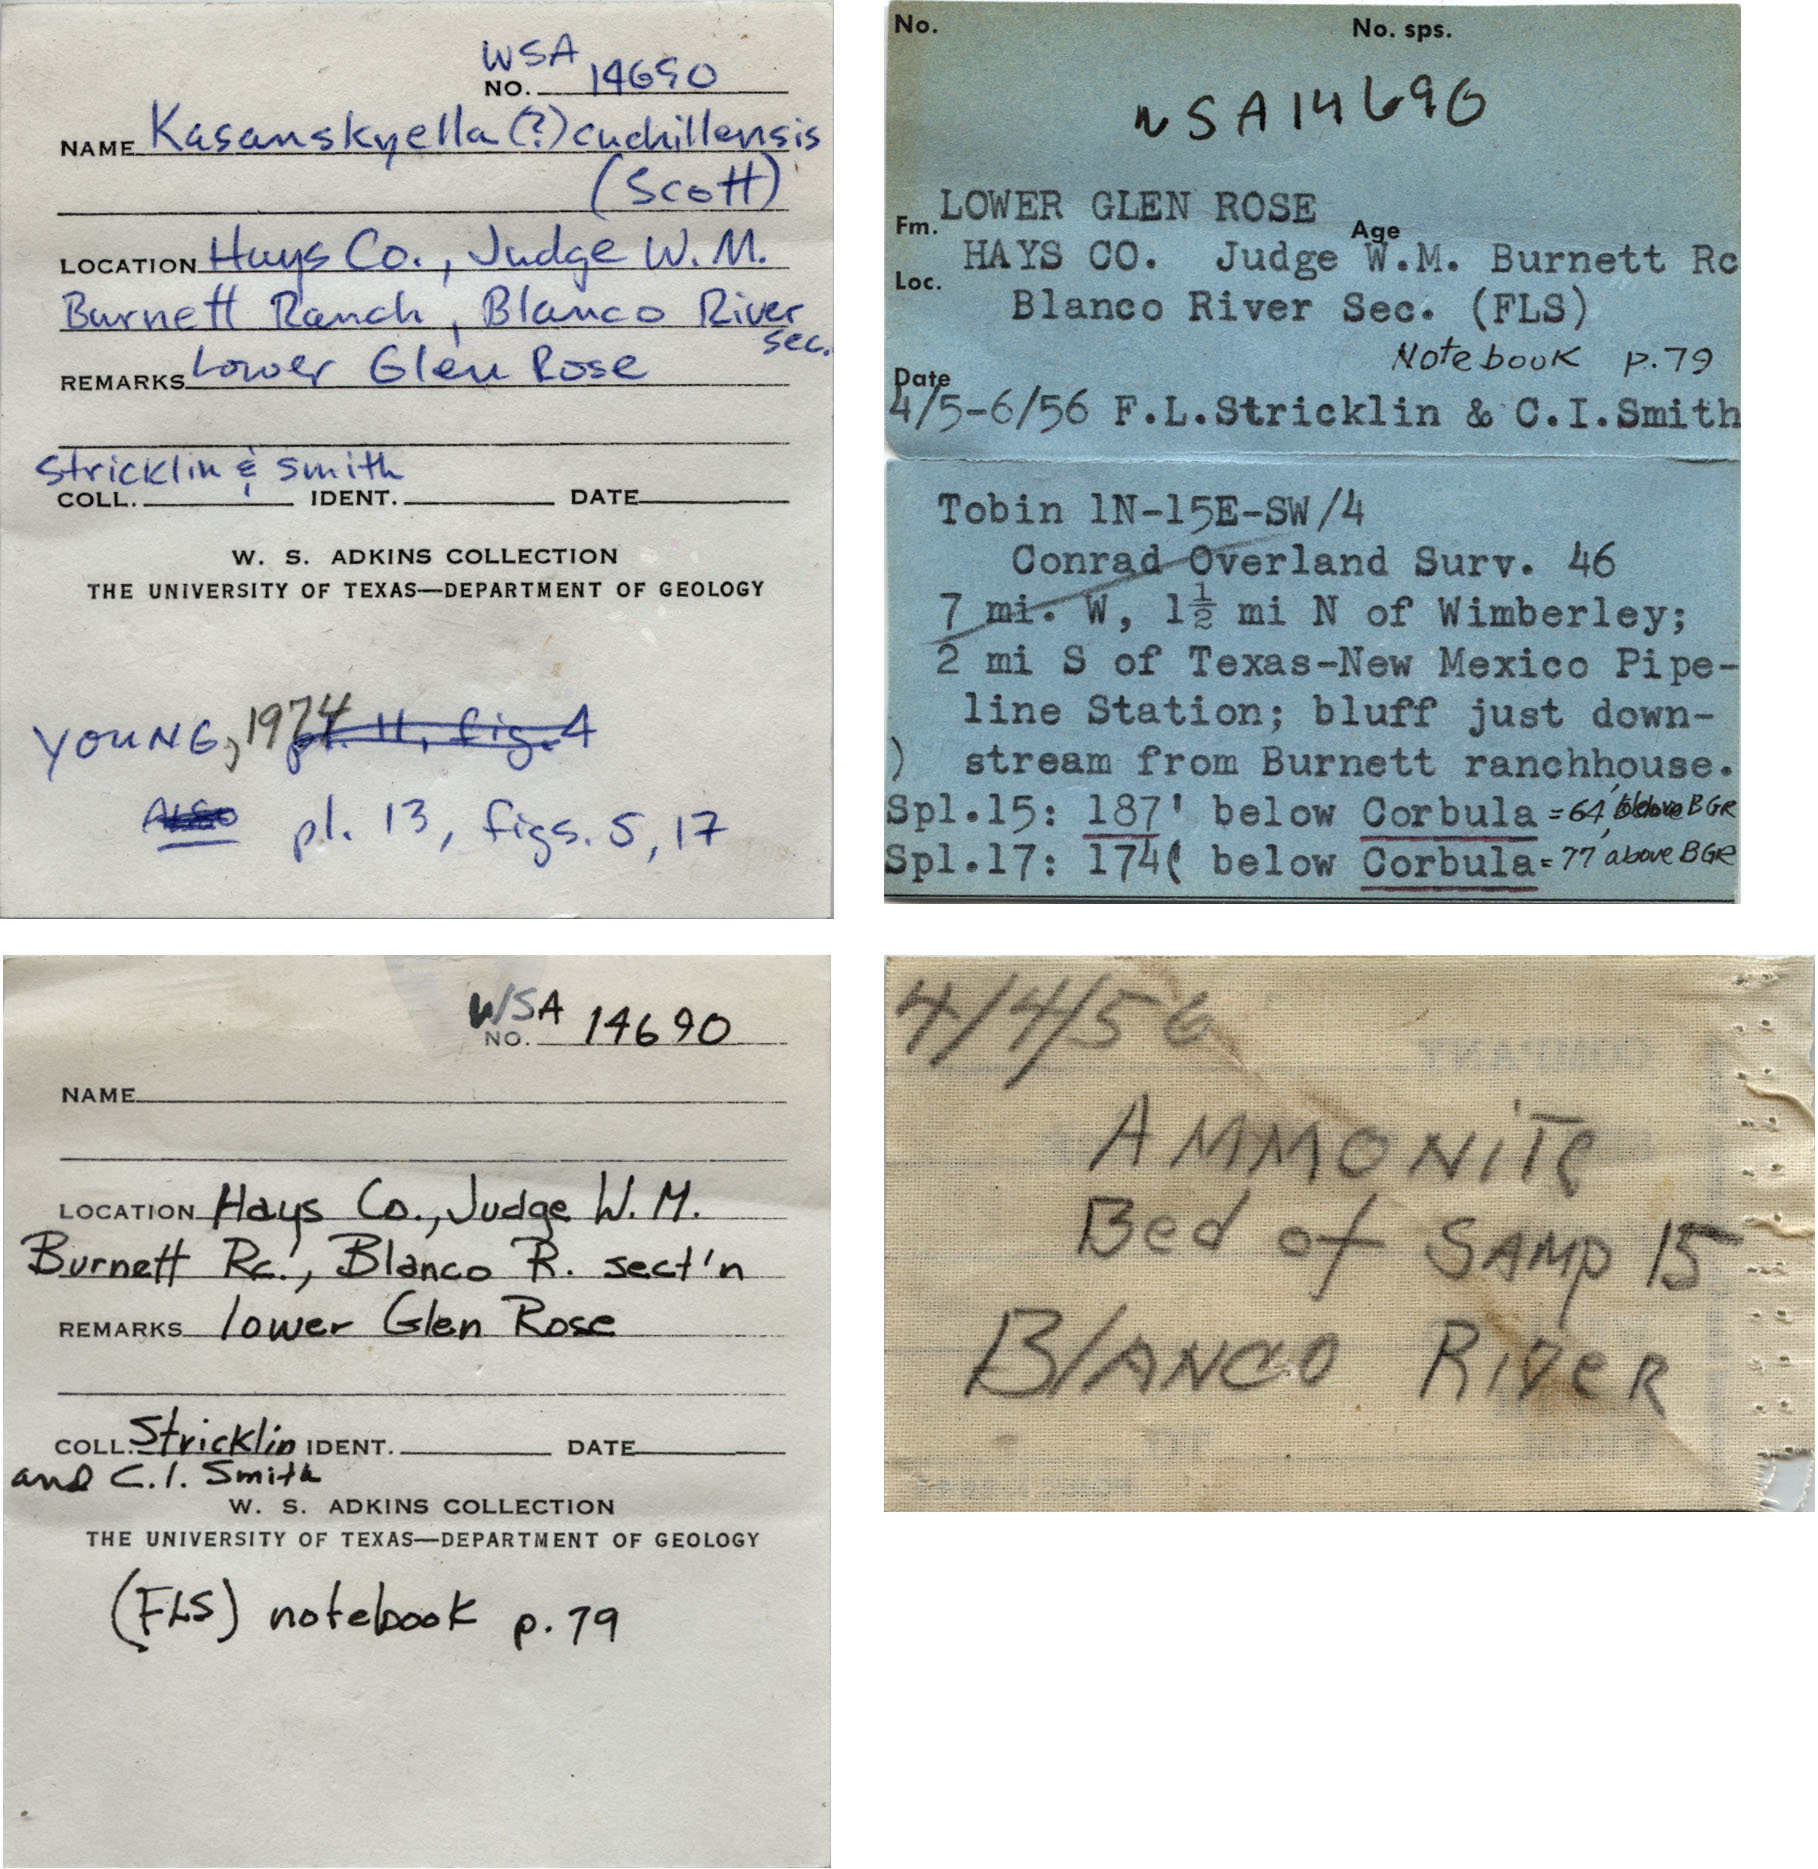 WSA
NO. 14690
NAME Kasanskyella (?) cuchillensis
(Scott)
LOCATION Hays Co., Judge W. M.
Burnett Ranch, Blanco River
sec.
REMARKS Lower Glen Rose
Stricklin & Smith
COLL. IDENT. DATE
W. S. ADKINS COLLECTION
THE UNIVERSITY OF TEXAS—DEPARTMENT OF GEOLOGY
YOUNG, 1974 pl. 11, fig. 4
ALSO pl. 13, figs. 5, 17
No. No. sps.
WSA 14690
Fm. LOWER GLEN ROSE Age
Loc. HAYS CO. Judge W.M. Burnett Rc
Blanco River Sec. (FLS)
Notebook p.79
Date
4/5-6/56 F.L.Stricklin & C.I.Smith
Tobin 1N-15E-SW/4
Conrad Overland Surv. 46
7 mi. W, 1½ mi N of Wimberley;
2 mi S of Texas-New Mexico Pipe-
line Station; bluff just down-
) stream from Burnett ranchhouse.
Spl.15: 187' below Corbula = 64' above BGR
Spl.17: 174( below Corbula = 77' above BGR
WSA
NO. 14690
NAME
LOCATION Hays Co., Judge W. M.
Burnett Rc., Blanco R. sect'n
REMARKS lower Glen Rose
COLL. Stricklin IDENT. DATE
and C. I. Smith
W. S. ADKINS COLLECTION
THE UNIVERSITY OF TEXAS—DEPARTMENT OF GEOLOGY
(FLS) notebook p. 79
4/4/56
AMMONITE
Bed of SAMP 15
BLANCO RIVER